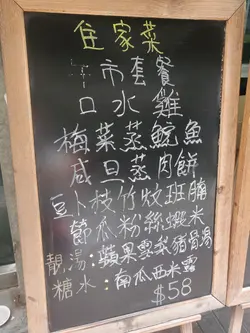 住家菜
午市套餐
口水雞
梅菜蒸鯇魚
咸旦蒸肉餅
豆卜枝竹炆班腩
節瓜粉絲蝦米
靚湯：蘋果雪梨豬骨湯
糖水：南瓜西米露
$58